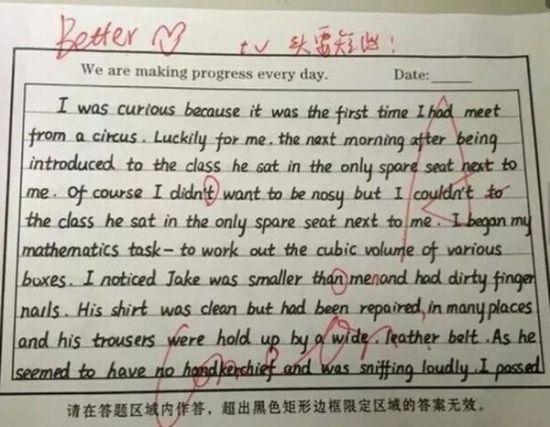 Better tv 头要短些!
We are making progress every day. Date:
I was curious because it was the first time I had meet
from a circus. Luckily for me, the next morning after being
introduced to the class he sat in the only spare seat next to
me. Of course I didn't want to be nosy but I couldn't to
the class he sat in the only spare seat next to me. I began my
mathematics task-to work out the cubic volume of various
boxes. I noticed Jake was smaller than menand had dirty finger
nails. His shirt was clean but had been repaired, in many places
and his trousers were hold up by a wide, leather belt. As he
seemed to have no handkerchief and was sniffing loudly. I passed
请在答题区域内作答，超出黑色矩形边框限定区域的答案无效。